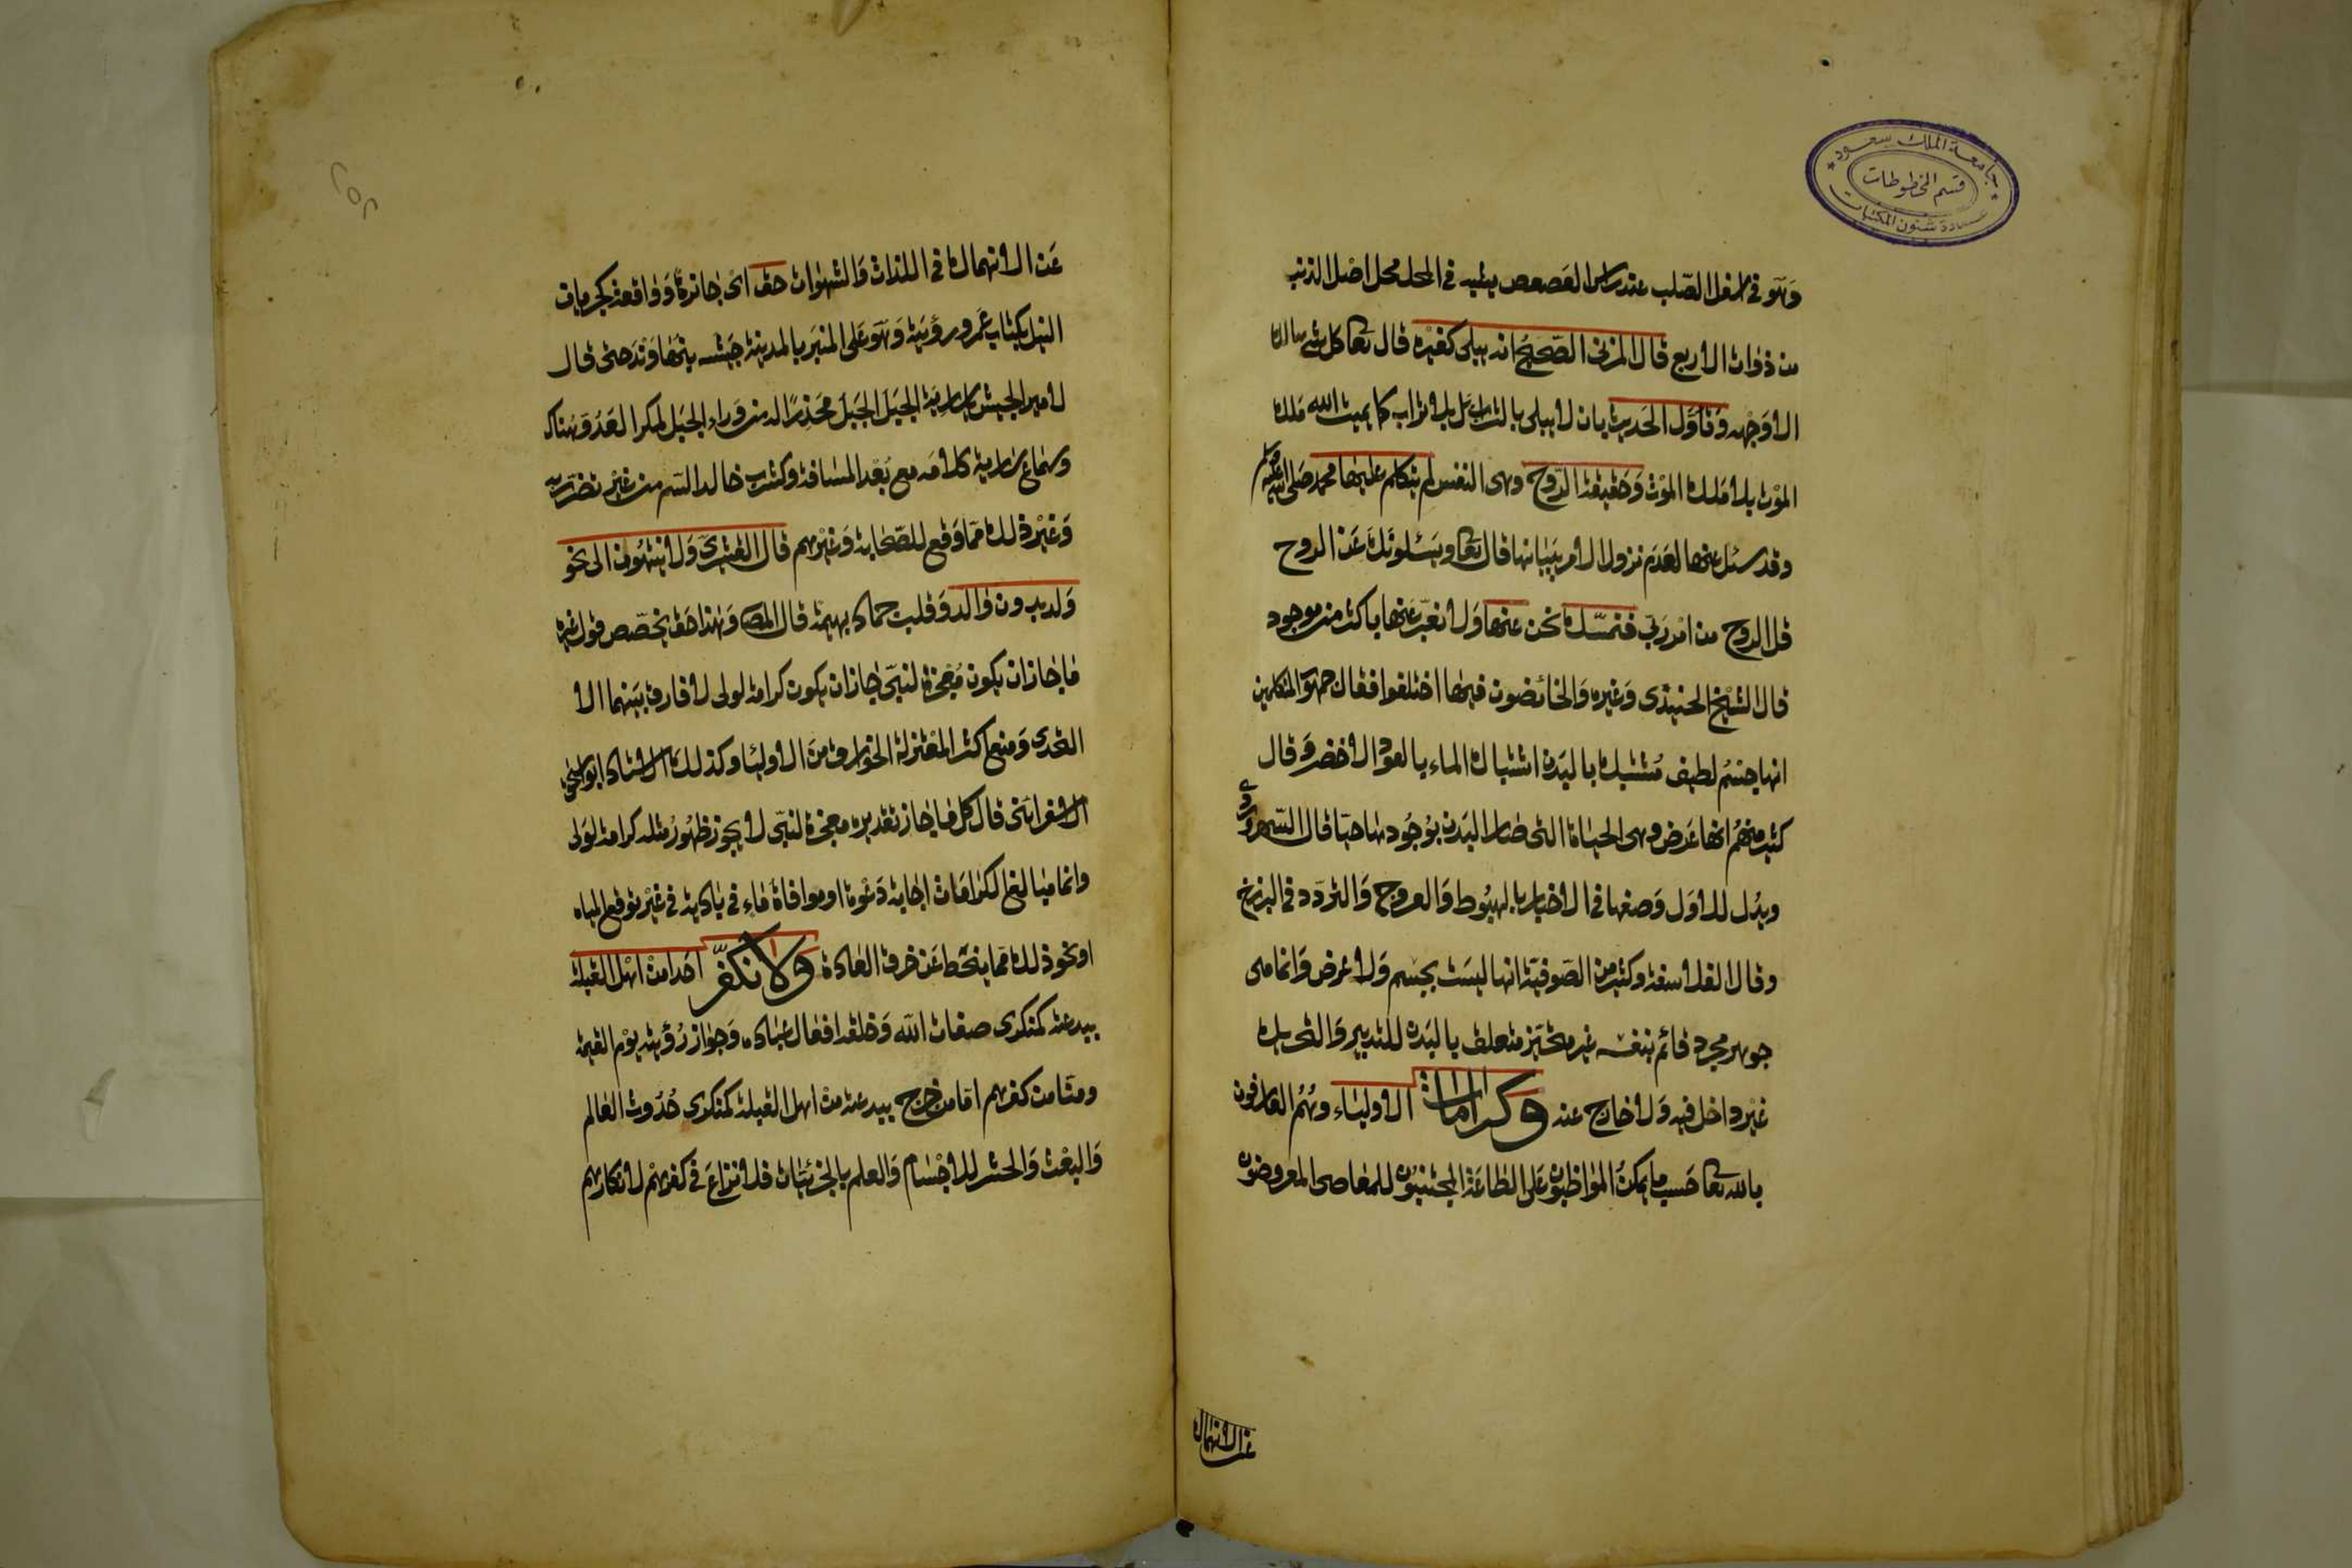 جامعة الملك سعود
قسم المخطوطات
عمادة شئون المكتبات
وَهَو في اسفل الصّلب عند راس العَصعص يشبه في المحل محل اصْل الذنب
من ذوات الاربع قال المزني الصّحيحُ انه يبلى كغيْره قال تعا كل شئ هالك
الا وَجْهه وَتاوّل الحَديث بان لا يبلى بالتراب بَل بلا تراب كما يميت الله مَلك
الموْت بلا مَلك الموْت وَحَقيقة الرّوح وهى النفس لم يتكلم عليها محمد صَلى الله عليه وسلم
وقد سئل عنها لعَدَم نزول الامر ببيانها قال تعا ويَسْئلونَكَ عَن الروح
قل الروح من امْر رَبّي فنمسك نحن عنها وَلا نعَبّر عَنها باكثر من موجود
قال الشيْخ الجنيدى وَغيره وَالخائضون فيها اختلفوا فقال جمهوَر المتكلمين
انها جسْم لطيف مُشتبك بالبَدن اشتباك الماء بالعود الاخضر وَقال
كثير منهمْ انها عَرض وهى الحياة التى صار البَدن بوُجُودها حيّا قال السّهروردى
ويدُل للاوَل وَصفها في الاخبار بالهبُوط وَالعروج وَالتردّد في البرزخ
وقال الفلاسفة وكثير من الصّوفيّة انها ليسَت بجسْم وَلا عرض وَانما هى
جوهر مجرد قائم بنفسه غير متحيّز متعلق بالبَدن للتدبير وَالتحريك
غيْر داخل فيه وَلا خارج عنه وكرامات الاوليَاء وهُمُ العارفون
بالله تعا حَسب ما يمكنُ المواظبون عَلى الطاعَة المجتنبُون للمعَاصى المعرضون
عن الانهماك
٢٥٢
عَن الانهماك في اللذات وَالشهوَات حق اىْ جائزة وَوَاقعة كجريان
النيل بكتاب عُمر ورؤيته وَهَو عَلى المنبَر بالمدينة جَيْشه بنهَاوَنْدَ حتى قال
لامير الجيش يا ساريَة الجبَل الجَبَل محَذِرًا له من وَراء الجبَل لمكر العَدُوّ هُناك
وسَماع ساريَة كلامَه مع بُعْد المسَافة وكشرب خالد السّم من غيْر تضرّر به
وَغيْر ذلك ممّا وَقع للصّحَابة وَغيْرهم قال القشيرىّ وَلا ينتهُون الى نحو
وَلد بدون وَالد وَقلب جماد بهيمَة قال المصَ وَهَذا حَق يخصّص قول غيره
مَا جَاز ان يكون مُعْجزة لنبىّ جَاز ان يكون كرامة لولى لا فارق بيَنهما الا
التحَدى وَمنع اكثر المعْتزلة الخوَارق منَ الاوليَا وكذلكَ الاسْتاذ ابو اسحق
الاسفرائنى قال كل مَا جَاز تقديره معجزة لنبىّ لا يجوز ظهُورُ مثله كرامة لوَلى
وانما مبَالغ الكرامَات اجَابة دَعْوة او موافاة مَاءٍ في بَادية في غيْر توقع المياه
او نحو ذلك ممّا ينحَط عَن خرق العَادة وَلا نكفّر احَدا منْ اهْل القبلة
ببدعَته كمنكرى صفات الله وَخلقه افعال عبَاده وَجوَاز رُؤيته يوْم القيمة
ومنّا من كفرهم امّا من خرج ببدعَته منْ اهل القبلة كمنكرى حُدُوث العَالم
وَالبعْث وَالحَشر للاجْسَام وَالعلم بالجزئيَات فلا نزاعَ في كفرهمْ لانكارهم